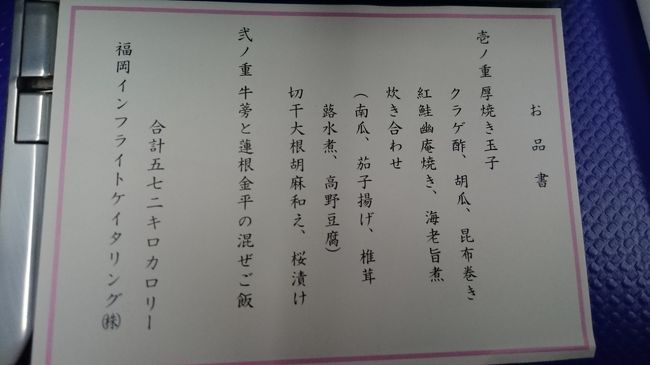 お品書
壱ノ重 厚焼き玉子
クラゲ酢、胡瓜、昆布巻き
紅鮭幽庵焼き、海老旨煮
炊き合わせ
(南瓜、茄子揚げ、椎茸
蕗水煮、高野豆腐)
切干大根胡麻和え、桜漬け
弐ノ重 牛蒡と蓮根金平の混ぜご飯
合計五七二キロカロリー
福岡インフライトケイタリング㈱